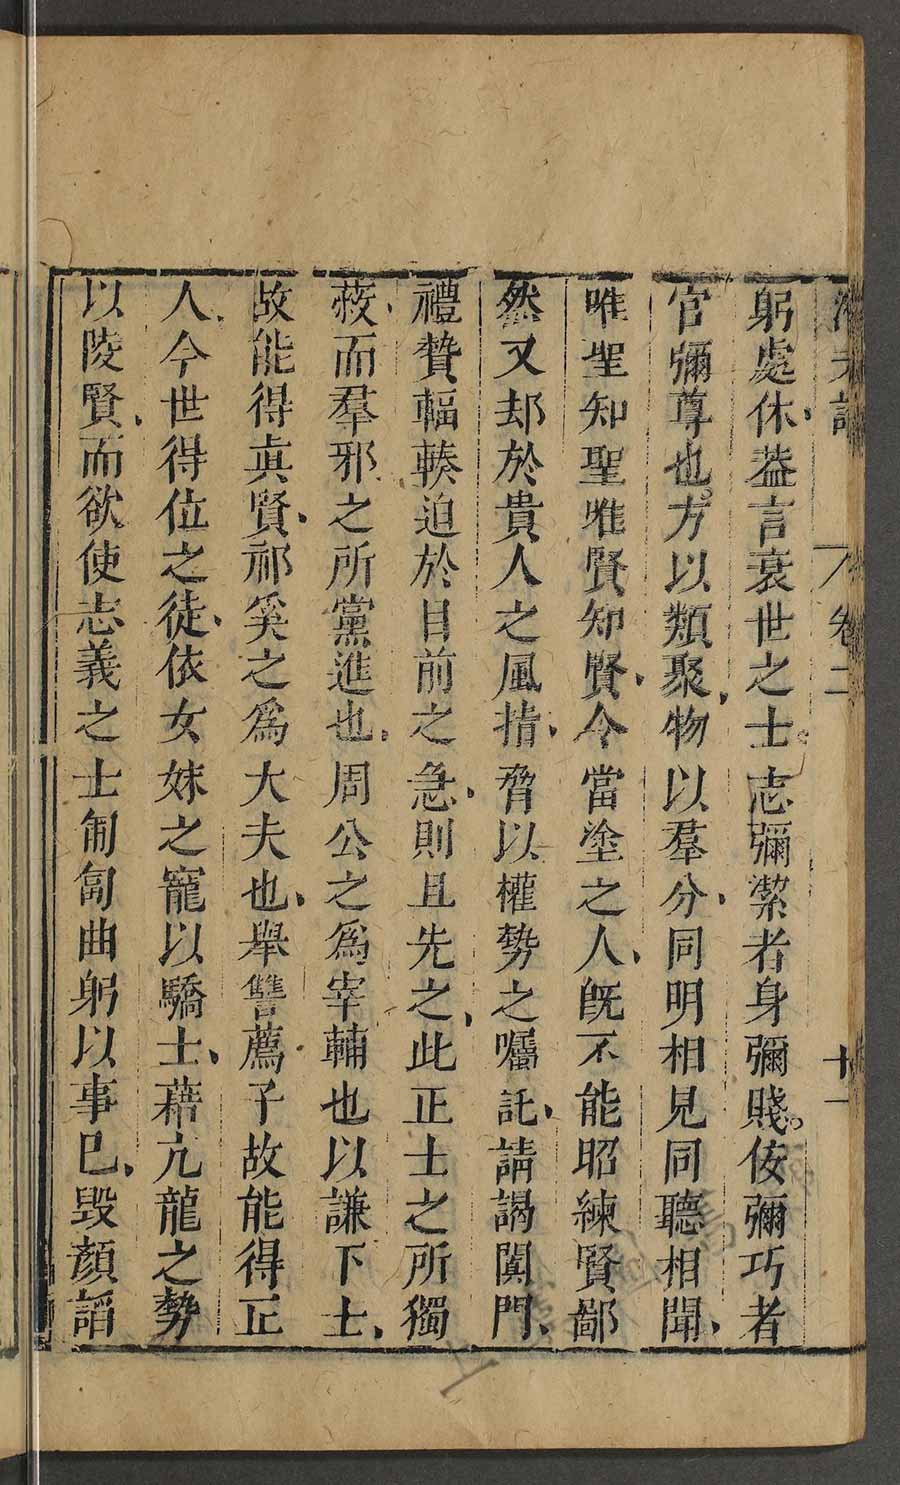 卷二 十一
躬處休葢言衰世之士志彌潔者身彌賤佞彌巧者
官彌尊也方以類聚物以羣分同明相見同聽相聞
唯聖知聖唯賢知賢今當塗之人既不能昭練賢鄙
然又却於貴人之風指脅以權勢之囑託請謁闐門
禮贄輻輳迫於目前之急則且先之此正士之所獨
蔽而羣邪之所黨進也周公之爲宰輔也以謙下士
故能得眞賢祁奚之爲大夫也舉讐薦子故能得正
人今世得位之徒依女妹之寵以驕士藉亢龍之勢
以陵賢而欲使志義之士匍匐曲躬以事巳毀顏謟